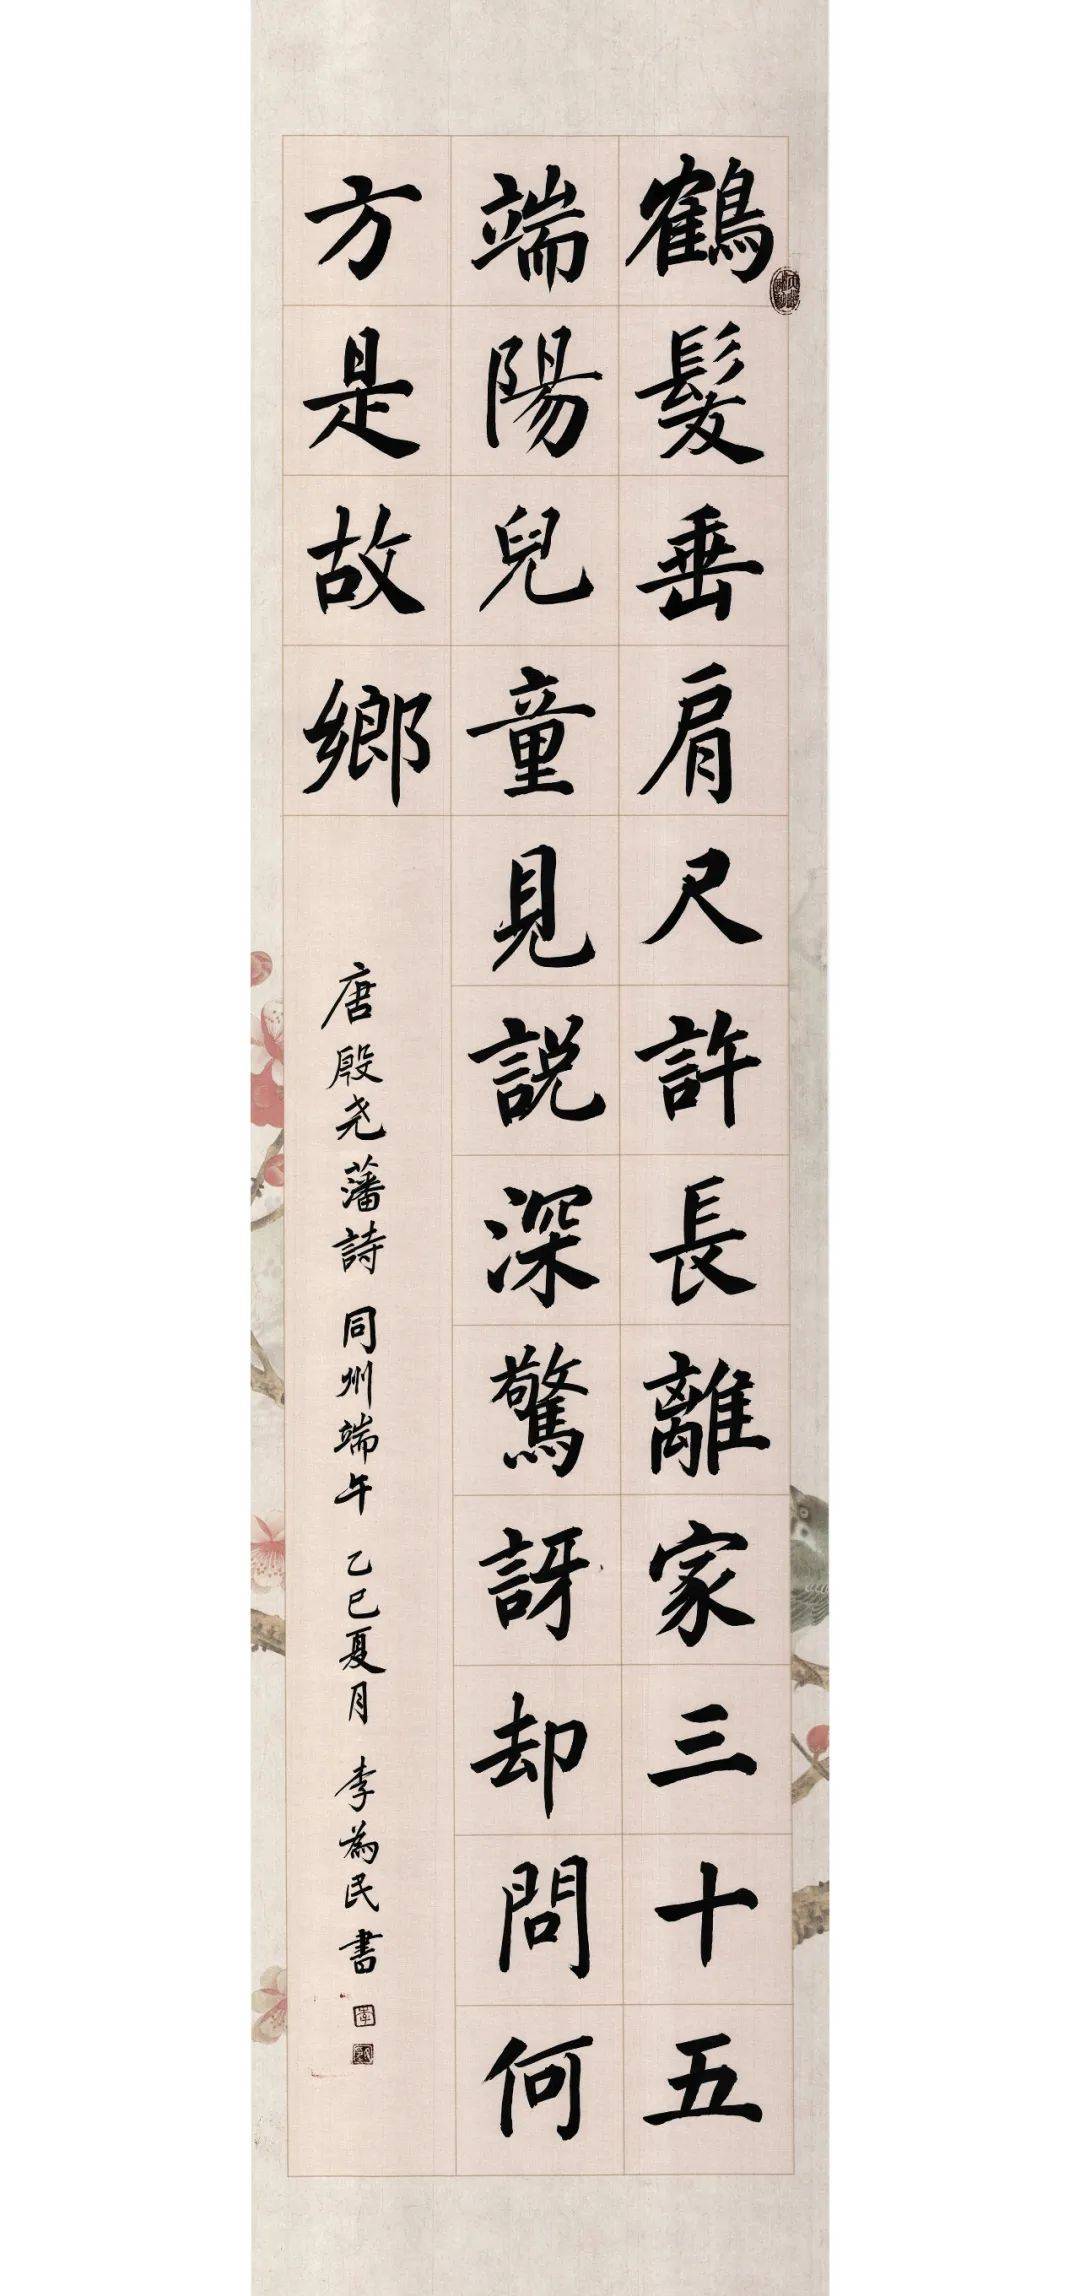 鶴髮垂肩尺許長離家三十五
端陽兒童見説深驚訝却問何
方是故鄉
唐殷尧藩詩 同州端午 乙巳夏月 李為民書